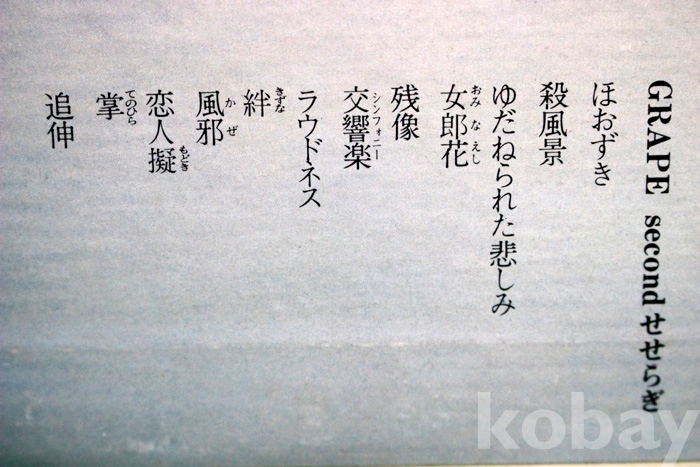 GRAPE second せせらぎ
ほおずき
殺風景
ゆだねられた悲しみ
女郎花
おみなえし
残像
交響楽
シンフォニー
ラウドネス
絆
きずな
風邪
かぜ
恋人擬
もどき
掌
てのひら
追伸
kobay